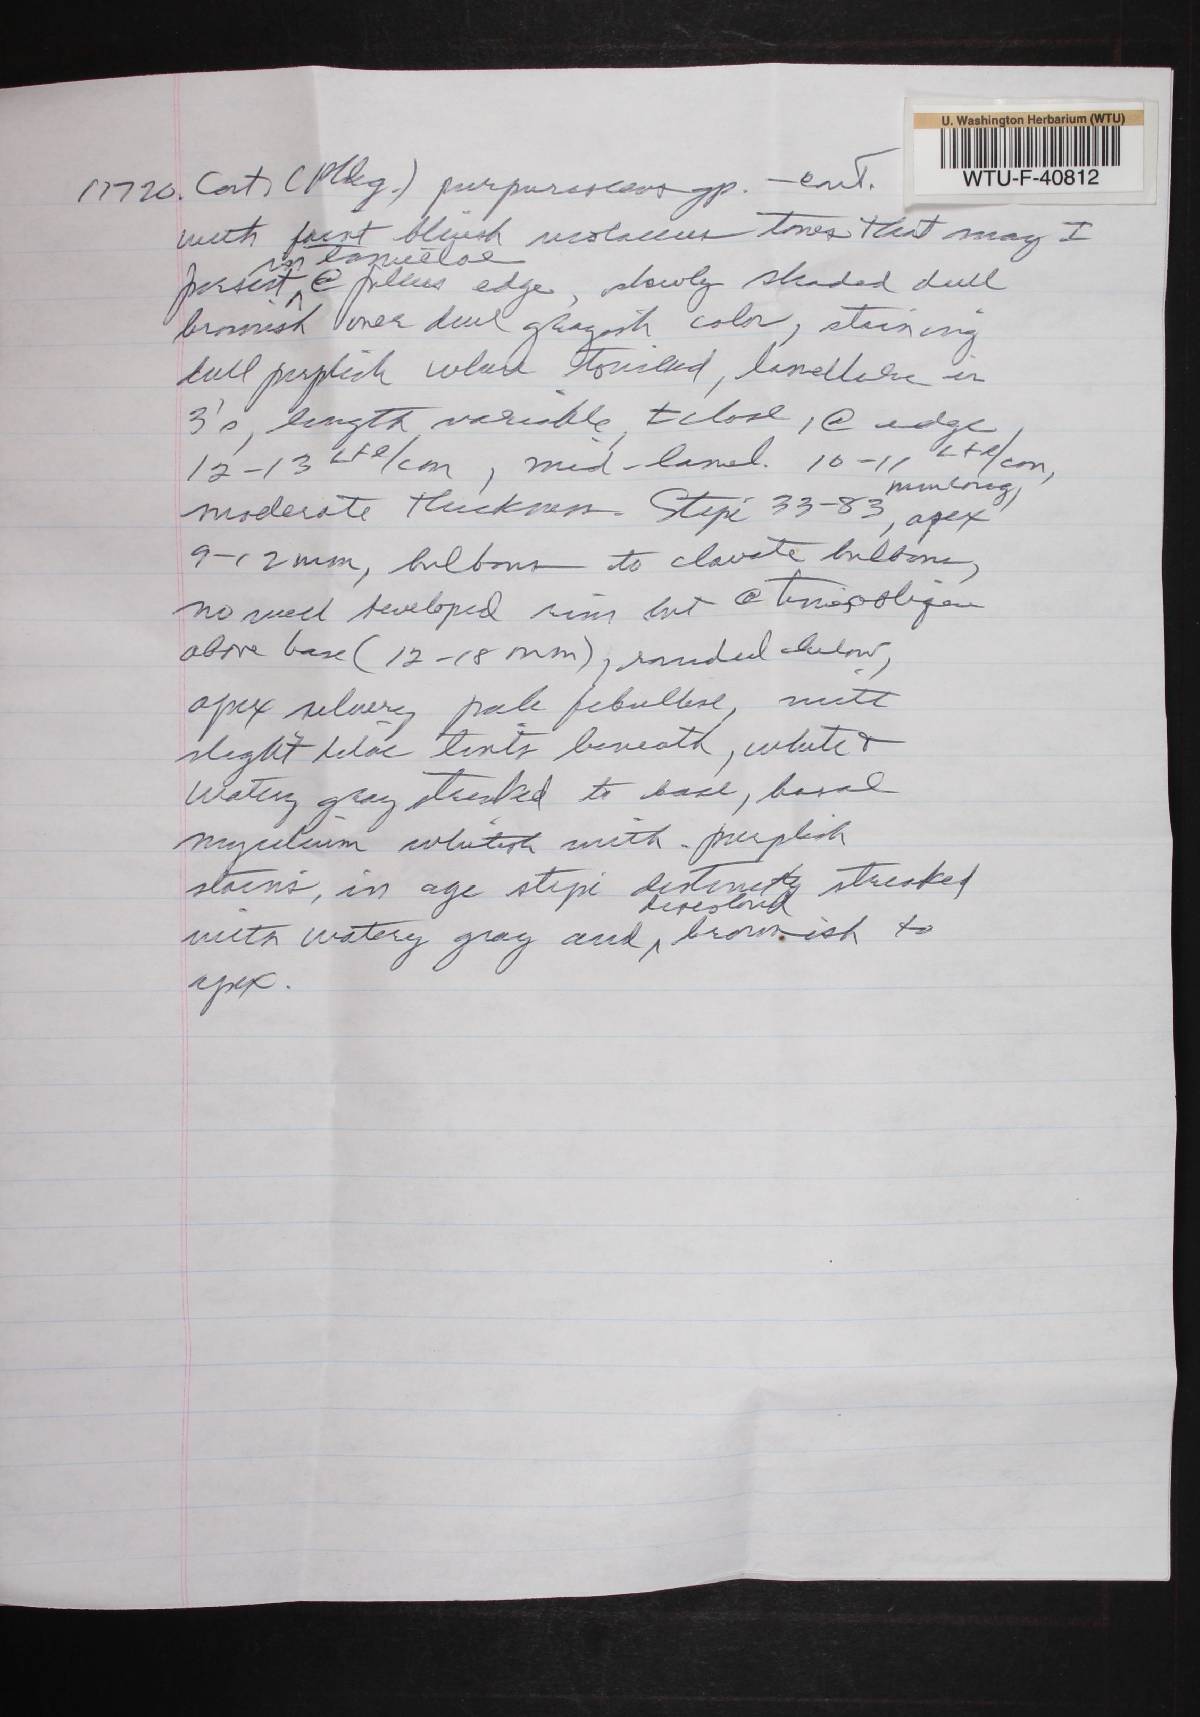 U. Washington Herbarium (WTU)
WTU-F-40812
17720. Cort. (Phleg.) purpurascens gp. - cont.
with faint bluish violaceus tones that may
in lamellae
persist ^ @ pileus edge, slowly shaded dull
brownish over dull grayish color, staining
dull purplish where bruised, lamellulae in
3's, length variable, ± close, @ edge,
12-13 L+l/cm, mid-lamel. 10-11 L+l/cm,
mm long,
moderate thickness. Stipe 33-83, apex
9-12 mm, bulbous to clavate bulbous,
no well developed rim but @ times
above base (12-18 mm), rounded below,
apex silvery pale fibrillose, with
slight lilac tints beneath, white &
watery gray streaked to base, basal
mycelium whitish with purplish
stains, in age stipe distinctly streaked
with watery gray and ^ brownish to
apex.